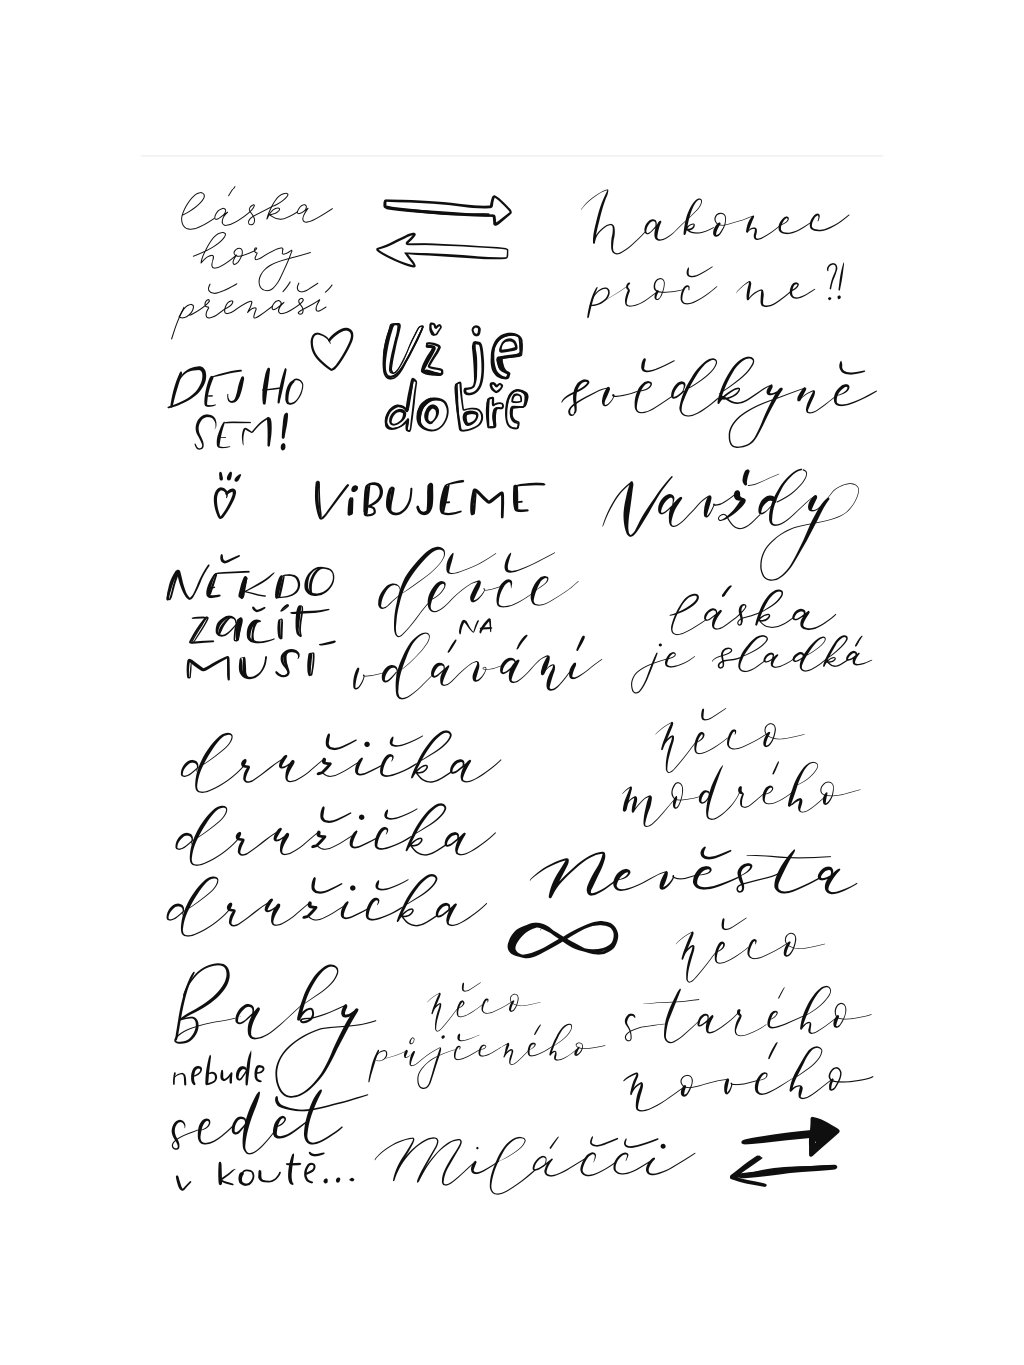 láska
hory
přenáší
nakonec
proč ne?!
DEJ HO
SEM!
Už je
dobře
svědkyně
ViBUJEME
Navždy
NĚKDO
začít
MUSÍ
děvče
NA
vdávání
láska
je sladká
družička
družička
družička
něco
modrého
Nevěsta
něco
starého
nového
Baby
nebude
sedět
v koutě...
něco
půjčeného
Miláčči